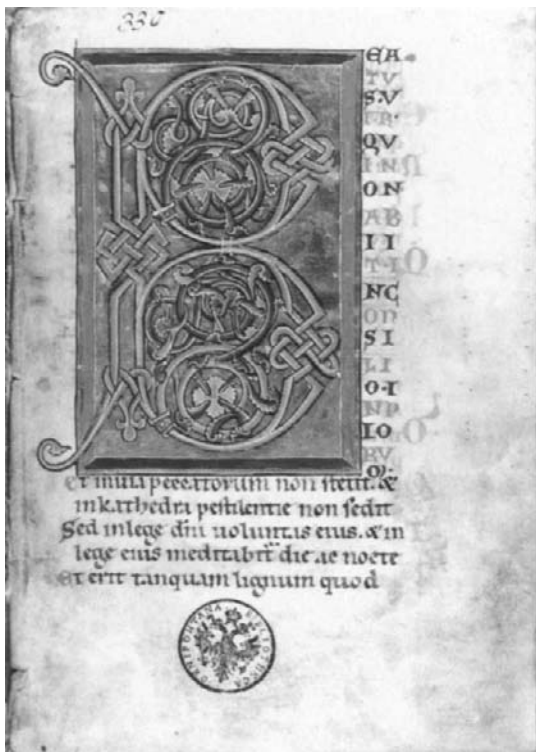 330
B
EA-
TV
S·V
IR·
QV
IN
ON
AB
II
T·I
NC
ON
SI
LI
O·I
NP
IO
RV
M·
Et inuia peccatorum non stetit. &
inkathedra pestilentie non sedit
Sed inlege dñi uoluntas eius. & in
lege eius meditabit̄ die ac nocte
Et erit tanquam lignum quod
BIBLIOTHECA OENIPONTANA